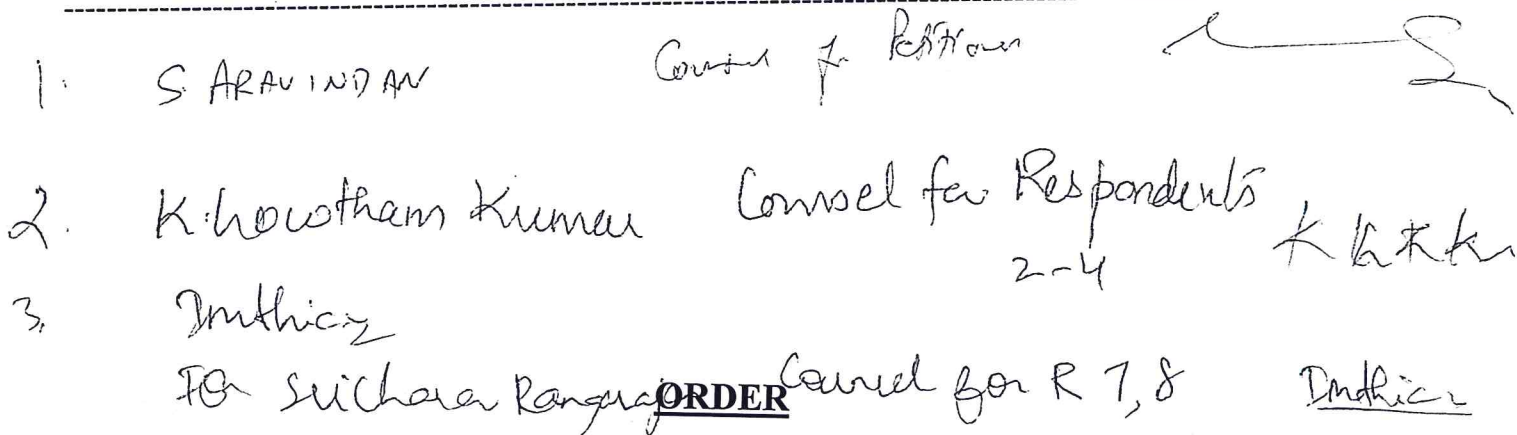 1. S. ARAVINDAN Counsel for Petitioner
2. K. Gowtham Kumar Counsel for Respondents
2-4
3.
For Sricharan Rangarajan ORDER Counsel for R 7,8